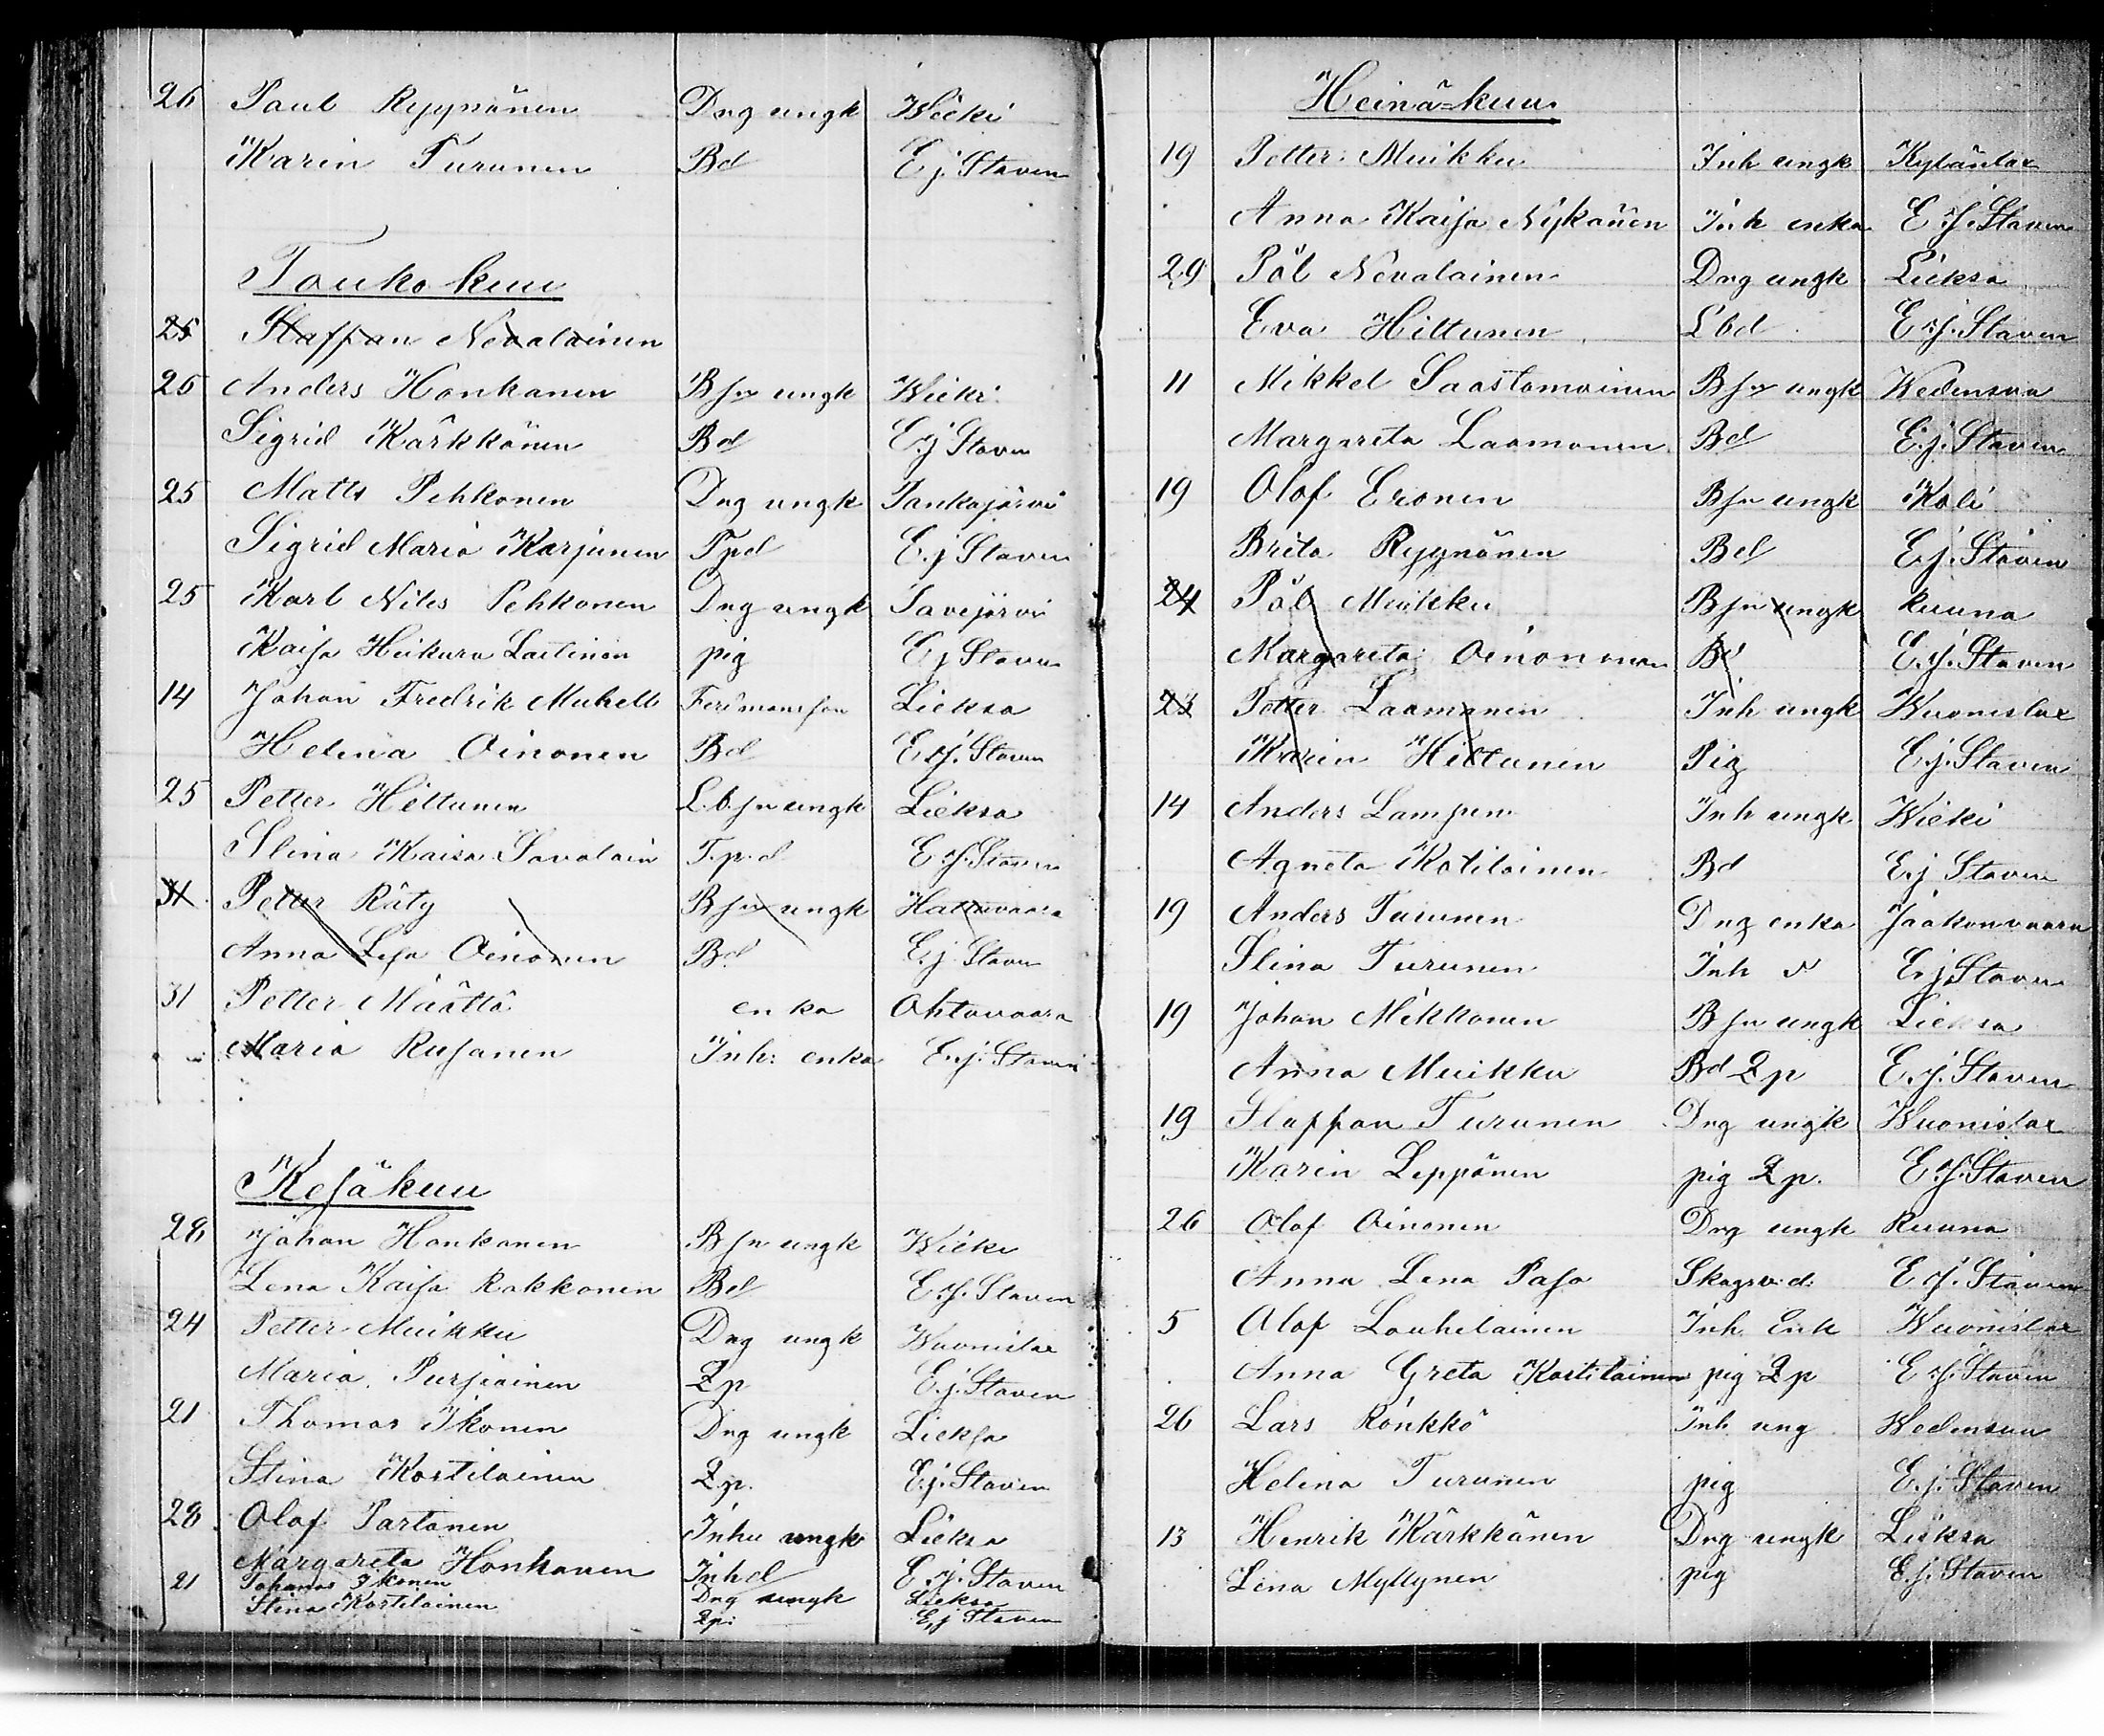 26 Paul Ryynänen Dng ungk Wieki
Karin Turunen Bd E.j. Staven
Toukokuu
25 Staffan Nevalainen
25 Anders Honkanen Bsn ungk Wieki
Sigrid Kärkkänen Bd E.j Staven
25 Matts Pehkonen Dng ungk Pankajärvi
Sigrid Maria Karjunen Tpd E.j Staven
25 Karl Nils Pehkonen Dng ungk Savijärvi
Kaisa Heikura Laitinen pig E.j Staven
14 Johan Fredrik Muhell Lieksa
Helena Oinonen Bd E.j. Staven
25 Petter Hiltunen L.b.sn ungk Lieksa
Stina Kaisa Savolain T.p.d E.j. Staven
31 Petter Räty Bsn ungk Hattuvaara
Anna Lesa Oinonen Bd E.j Staven
31 Petter Määttä enka Ahtovaara
Maria Rusanen Inh: enka E.j. Staven
Kesäkuu
28 Johan Honkanen Bsn ungk Wieki
Lena Kaisa Kakkonen Bd E.j. Staven
24 Petter Muikku Dng ungk Wuonislax
Maria Purjiainen Qp E.j. Staven
21 Thomas Ikonen Dng ungk Lieksa
Stina Kostilainen Qp. E.j. Staven
28 Olof Partanen Inhu ungk Lieksa
Margareta Honkanen Inhd E.j. Staven
21 Johanas Ikonen Dng ungk Lieksa
Stina Kostilainen Qp: E.j Staven
Heinä-kuu
19 Petter Muikku Inh ungk Kylänlax
Anna Kaisa Nykänen Inh enka E.j. Staven
29 Pål Nevalainen Dng ungk Lieksa
Eva Hiltunen Lbd E.j. Staven
11 Mikkel Saastamoinen Bsn ungk Wedensuu
Margareta Laamanen Bd E.j. Staven
19 Olof Eronen Bsn ungk Koli
Brita Ryynänen Bd E.j. Staven
24 Pål Muikku Bsn ungk Ruuna
Margareta Oinonen Bd E.j. Staven
23 Petter Laamanen Inh ungk Wuonislax
Karin Hiltunen Pig E.j. Staven
14 Anders Lampen Inh ungk Wieki
Agneta Kotilainen Bd E.j Staven
19 Anders Turunen Dng enka Jaakonvaara
Stina Turunen Inh d E.j Staven
19 Johan Mikkonen Bsn ungk Lieksa
Anna Muikku Bd Qp E.j. Staven
19 Staffan Turunen Dng ungk Wuonislax
Karin Leppänen pig Qp. E.j. Staven
26 Olof Oinonen Dng ungk Ruuna
Anna Lena Pasa Skogsv.d. E.j. Staven
5 Olof Louhelainen Inh Enk Wuonislax
Anna Greta Kostilainen pig Qp E.j. Staven
26 Lars Rönkkö Inh ung Wedensuu
Helena Turunen pig E.j. Staven
13 Henrik Kärkkänen Dng ungk Lieksa
Lena Myllynen pig E.j. Staven